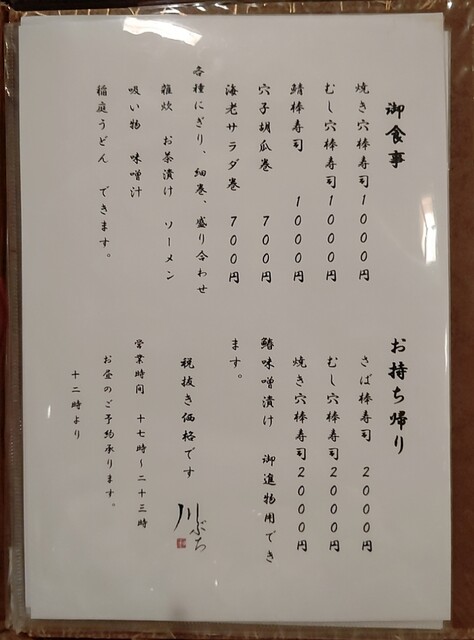 御食事
焼き穴棒寿司1000円
むし穴棒寿司1000円
鯖棒寿司 1000円
穴子胡瓜巻 700円
海老サラダ巻 700円
各種にぎり、細巻、盛り合わせ
雑炊 お茶漬け ソーメン
吸い物 味噌汁
稲庭うどん できます。
お持ち帰り
さば棒寿司 2000円
むし穴棒寿司2000円
焼き穴棒寿司2000円
鰆味噌漬け 御進物用でき
ます。
税抜き価格です
川ぶち
営業時間 十七時〜二十三時
お昼のご予約承ります。
十二時より